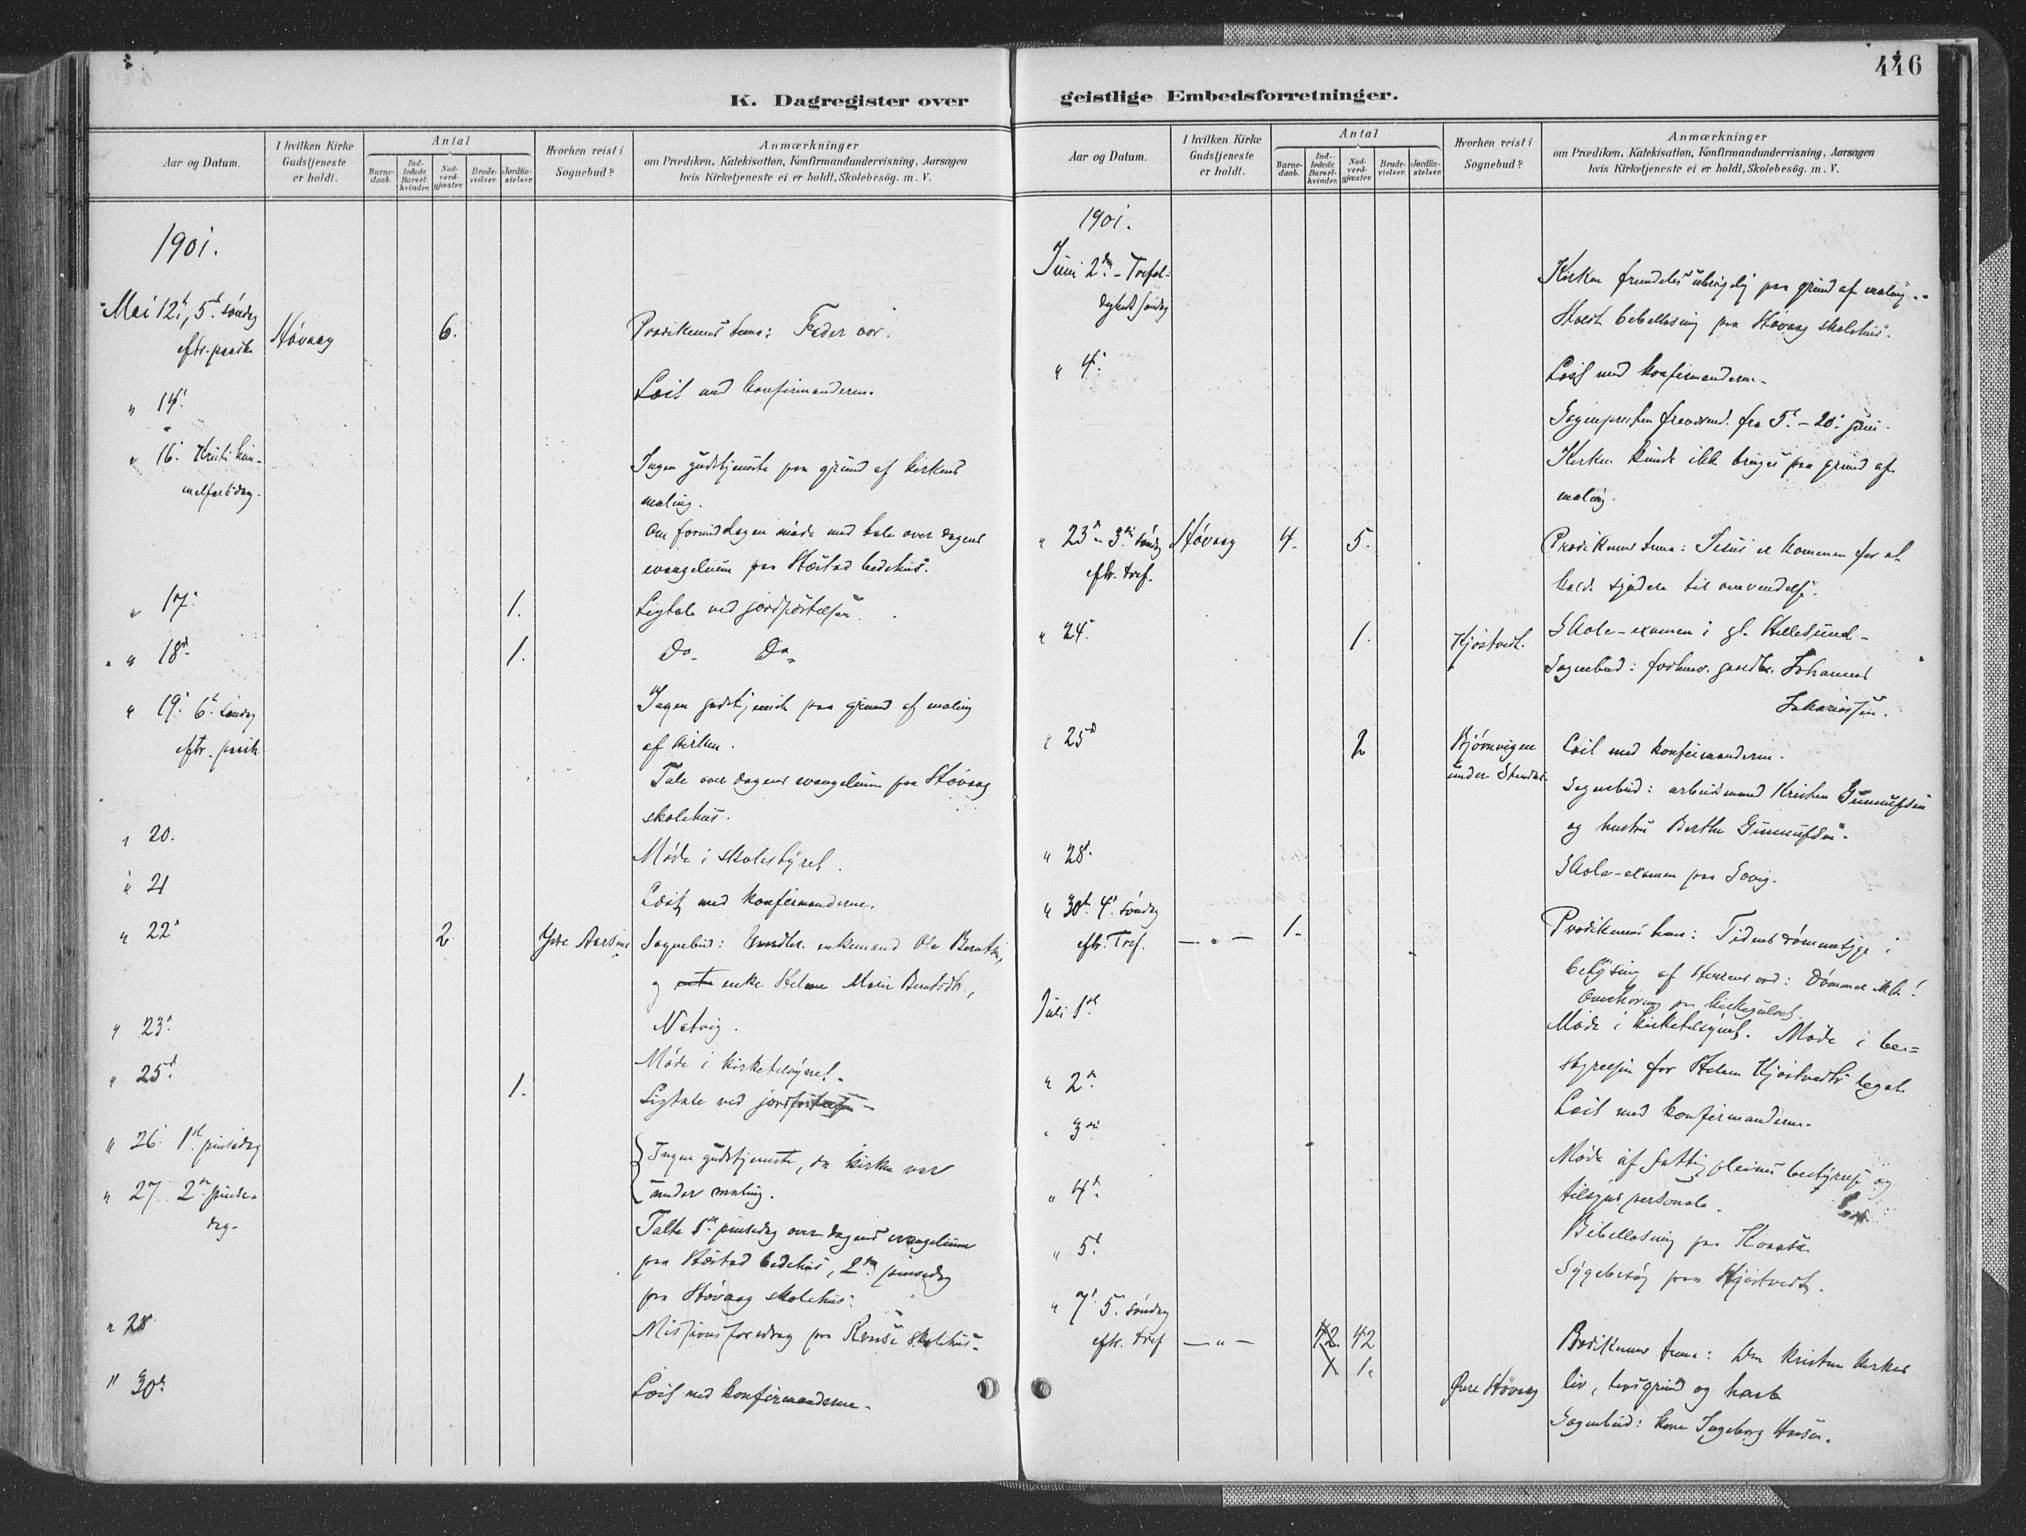 446
K. Dagregister over
geistlige Embedsforretninger.
Aar og Datum.
I hvilken Kirke Gudstjeneste er holdt.
Antal
Barne-daab.
Ind-ledede Barsel-kvinder.
Nad-verd-gjæster.
Brude-vielser.
Jordfæ-stelser.
Hvorhen reist i Sognebud?
Anmærkninger
om Prædiken, Katekisation, Konfirmandundervisning, Aarsagen
hvis Kirketjeneste ei er holdt, Skolebesøg. m. V.
1901.
Mai 12te, 5te søndag
eftr. paaske
Høvaag
6.
Prædikenens tema: Fader vor.
" 14.
Læst med konfirmanderne.
" 16. Kristi him-
melfartsdag.
Ingen gudstjeneste paa grund af kirkens
maling.
Om formiddagen møde med tale over dagens
evangelium paa Hæstad bedehus.
" 17.
1.
Ligtale ved jordfæstelsen.
" 18de
1.
Do. Do.
" 19. 6te søndag
eftr. paaske
Ingen gudstjeneste paa grund af maling
af kirken.
Tale over dagens evangelium paa Høvaag
skolehus.
" 20.
Møde i skolestyret.
" 21
Læst med konfirmanderne.
" 22
2
Sognebud: enkemand Ole Berntsen,
og enke Helene Marie
" 23.
Natvig.
Møde i kirketilsynet.
" 25de
1.
Ligtale ved jordfæstelsen
" 26. 1ste pinsedag
Ingen gudstjeneste, da kirken var
under maling.
" 27 2den pinse-
dag.
Talte 1ste pinsedag over dagens evangelium
paa Hæstad bedehus, 2den pinsedag
paa Høvaag skolehus.
" 28
Missionsforedrag paa skolehus.
" 30te
Læst med konfirmanderne.
Aar og Datum.
I hvilken Kirke Gudstjeneste er holdt.
Antal
Barne-daab.
Ind-ledede Barsel-kvinder.
Nad-verd-gjæster.
Brude-vielser.
Jordfæ-stelser.
Hvorhen reist i Sognebud?
Anmærkninger
om Prædiken, Katekisation, Konfirmandundervisning, Aarsagen
hvis Kirketjeneste ei er holdt, Skolebesøg. m. V.
1901.
Juni 2den – Trefol-
digheds søndag
Kirken fremdeles ubrugelig paa grund af maling.
Holdt bibellæsning paa Høvaag skolehus.
" 4.
Læst med konfirmanderne.
Sognepresten fra 5te – 20. juni.
Kirken kunde ikke bruges paa grund af
maling.
" 23de 3die søndag
eftr. tref.
Høvaag
4.
5.
Prædikenens tema: Jesus er kommen for at
kalde syndere til omvendelse.
" 24.
1.
Kjøstvedt.
Skole-examen i gl. Hellesund.
Sognebud: forhenv. gaardbr. Johannes
" 25de
2
under
Læst med konfirmanderne.
Sognebud: arbeidsmand Kristen Gunnufsen
og hustru Berthe Gunnufsen.
" 28.
Skole-examen paa
" 30te 4. søndag
eftr. Tref.
— " —
1.
Prædikenens tema: Tidens dømmesyge i
belysning af Herrens ord: Dømmer ikke!
Overhøring paa kirkegulvet.
Juli 1ste
Møde i kirketilsynet. Møde i be-
styrelsen for Helene Kjøstvedts legat
" 2den
Læst med konfirmanderne.
" 3die
Møde af fattigpleiens bestyrelse og
tilsynspersonale.
" 4de
Bibellæsning paa
" 5te
Sygebesøg paa Kjøstvedt.
" 7. 5. søndag
eftr. tref
— " —
42. 42
1.
Øvre Høvaag
Prædikenens tema: Den kristne kirkes
liv, livsgrund og haab
Sognebud: kone Ingeborg Hansen.